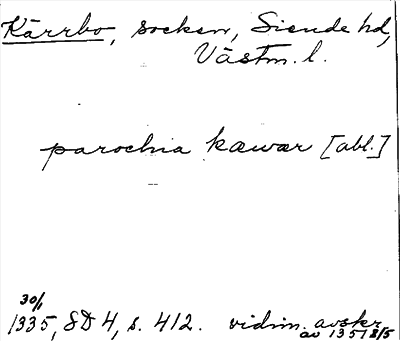 Kärrbo, socken, Siende hd,
Västm. l.
parochia kæwær [abl.]
30/1
1335, SD 4, s. 412. vidim. avskr.
av 1351 8/5